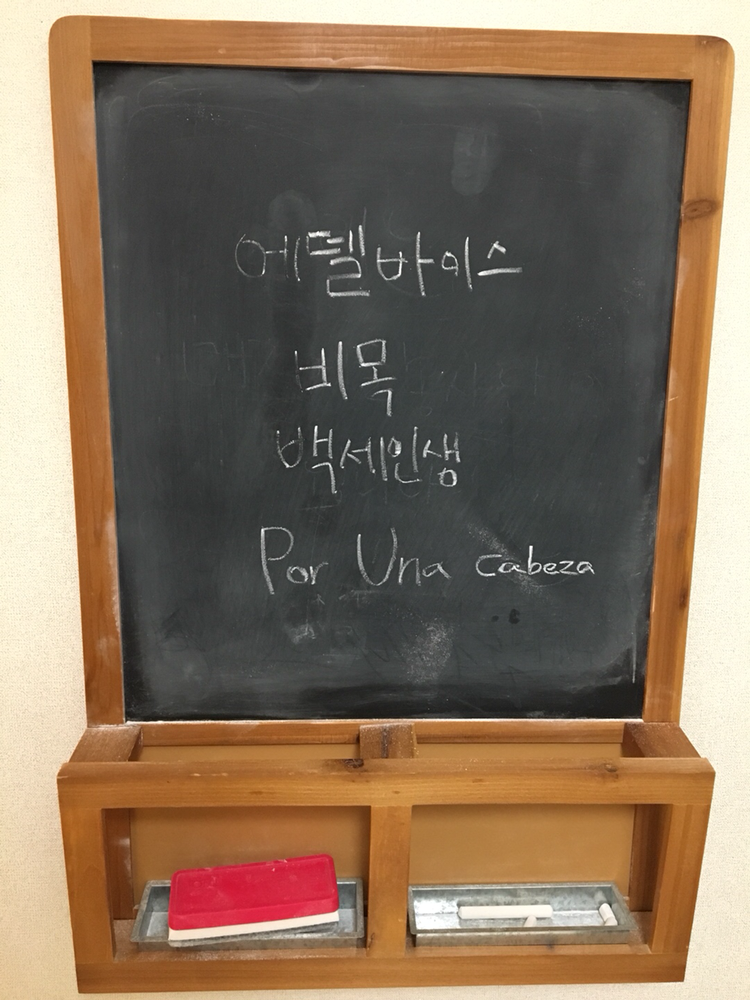 에델바이스
비목
백세인생
Por Una cabeza